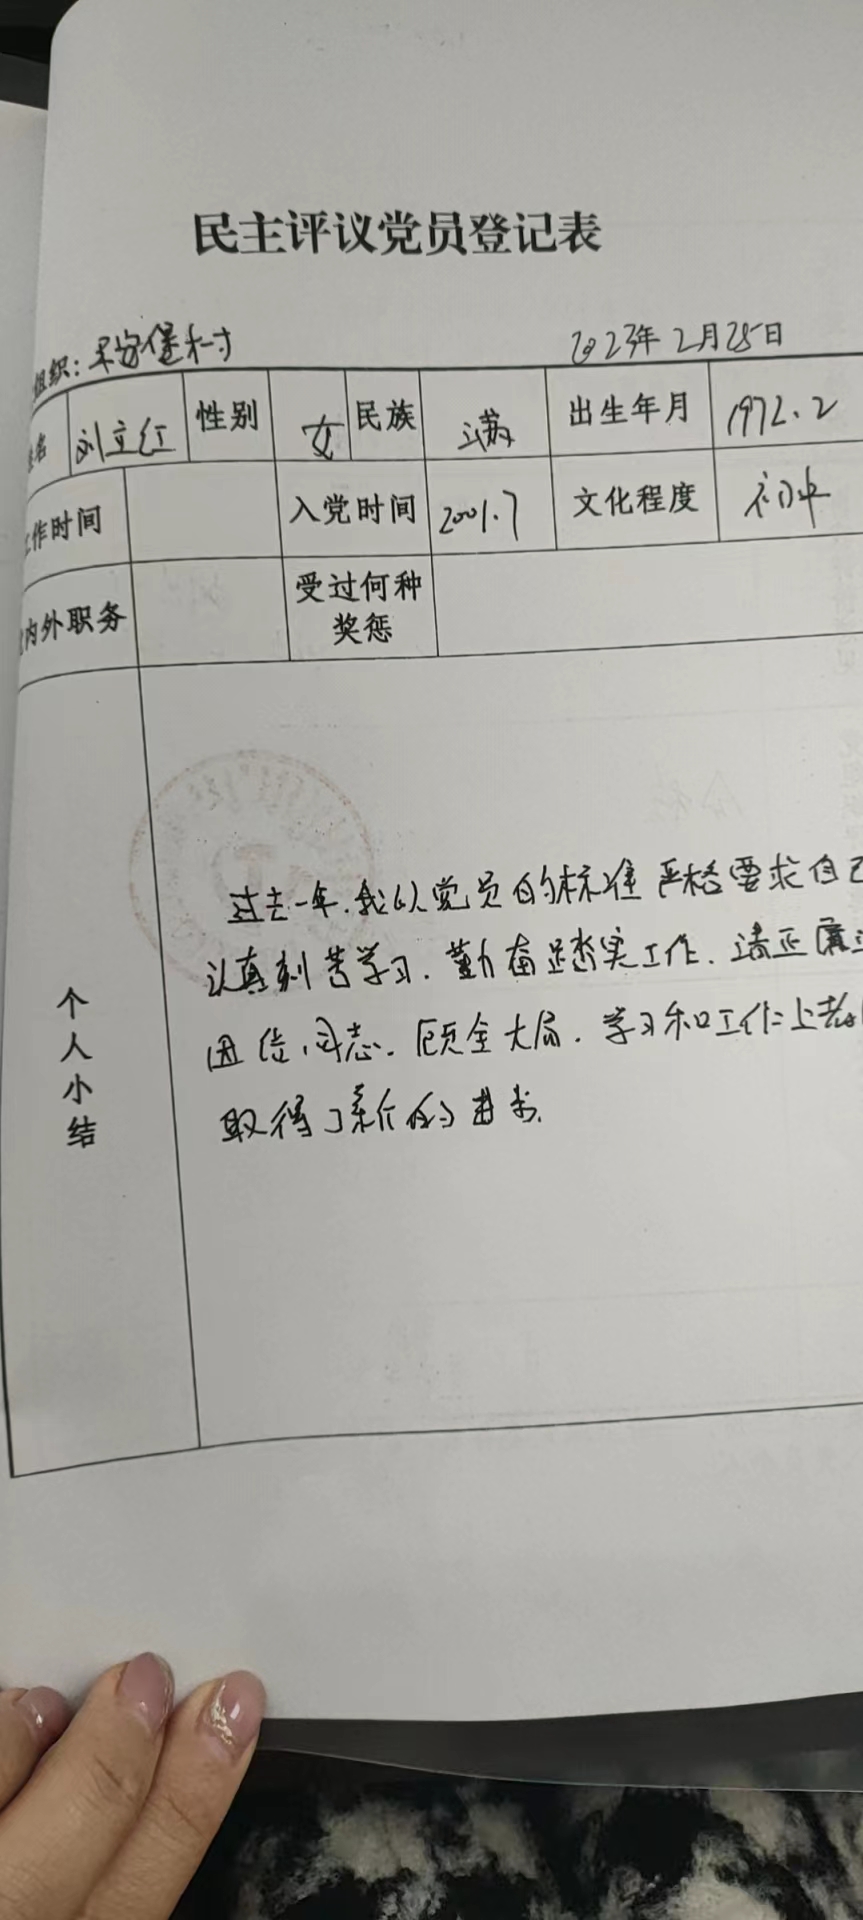 民主评议党员登记表
组织：宋家堡村 2023年2月25日
姓名 刘立红 性别 女 民族 满 出生年月 1972.2
工作时间 入党时间 2001.7 文化程度 初中
内外职务 受过何种
奖惩
个人小结
过去一年.我以党员的标准严格要求自己
认真刻苦学习.勤奋踏实工作.清正廉
团结同志.顾全大局.学习和工作上都
取得了新的进步.